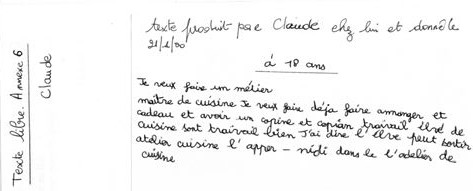 Texte libre. Annexe 6
Claude
texte produit par Claude chez lui et donné le
21/1/00
à 18 ans
Je veux faire un métier
maître de cuisine Je veux faire déja faire anmanger et
cadeau et avoir un copine et copian travail livré de
cuisine sont traivail bien J'ai dire l'élve peut sortir
atelier cuisine l'apper - midi dans le l'atelier de
cuisine